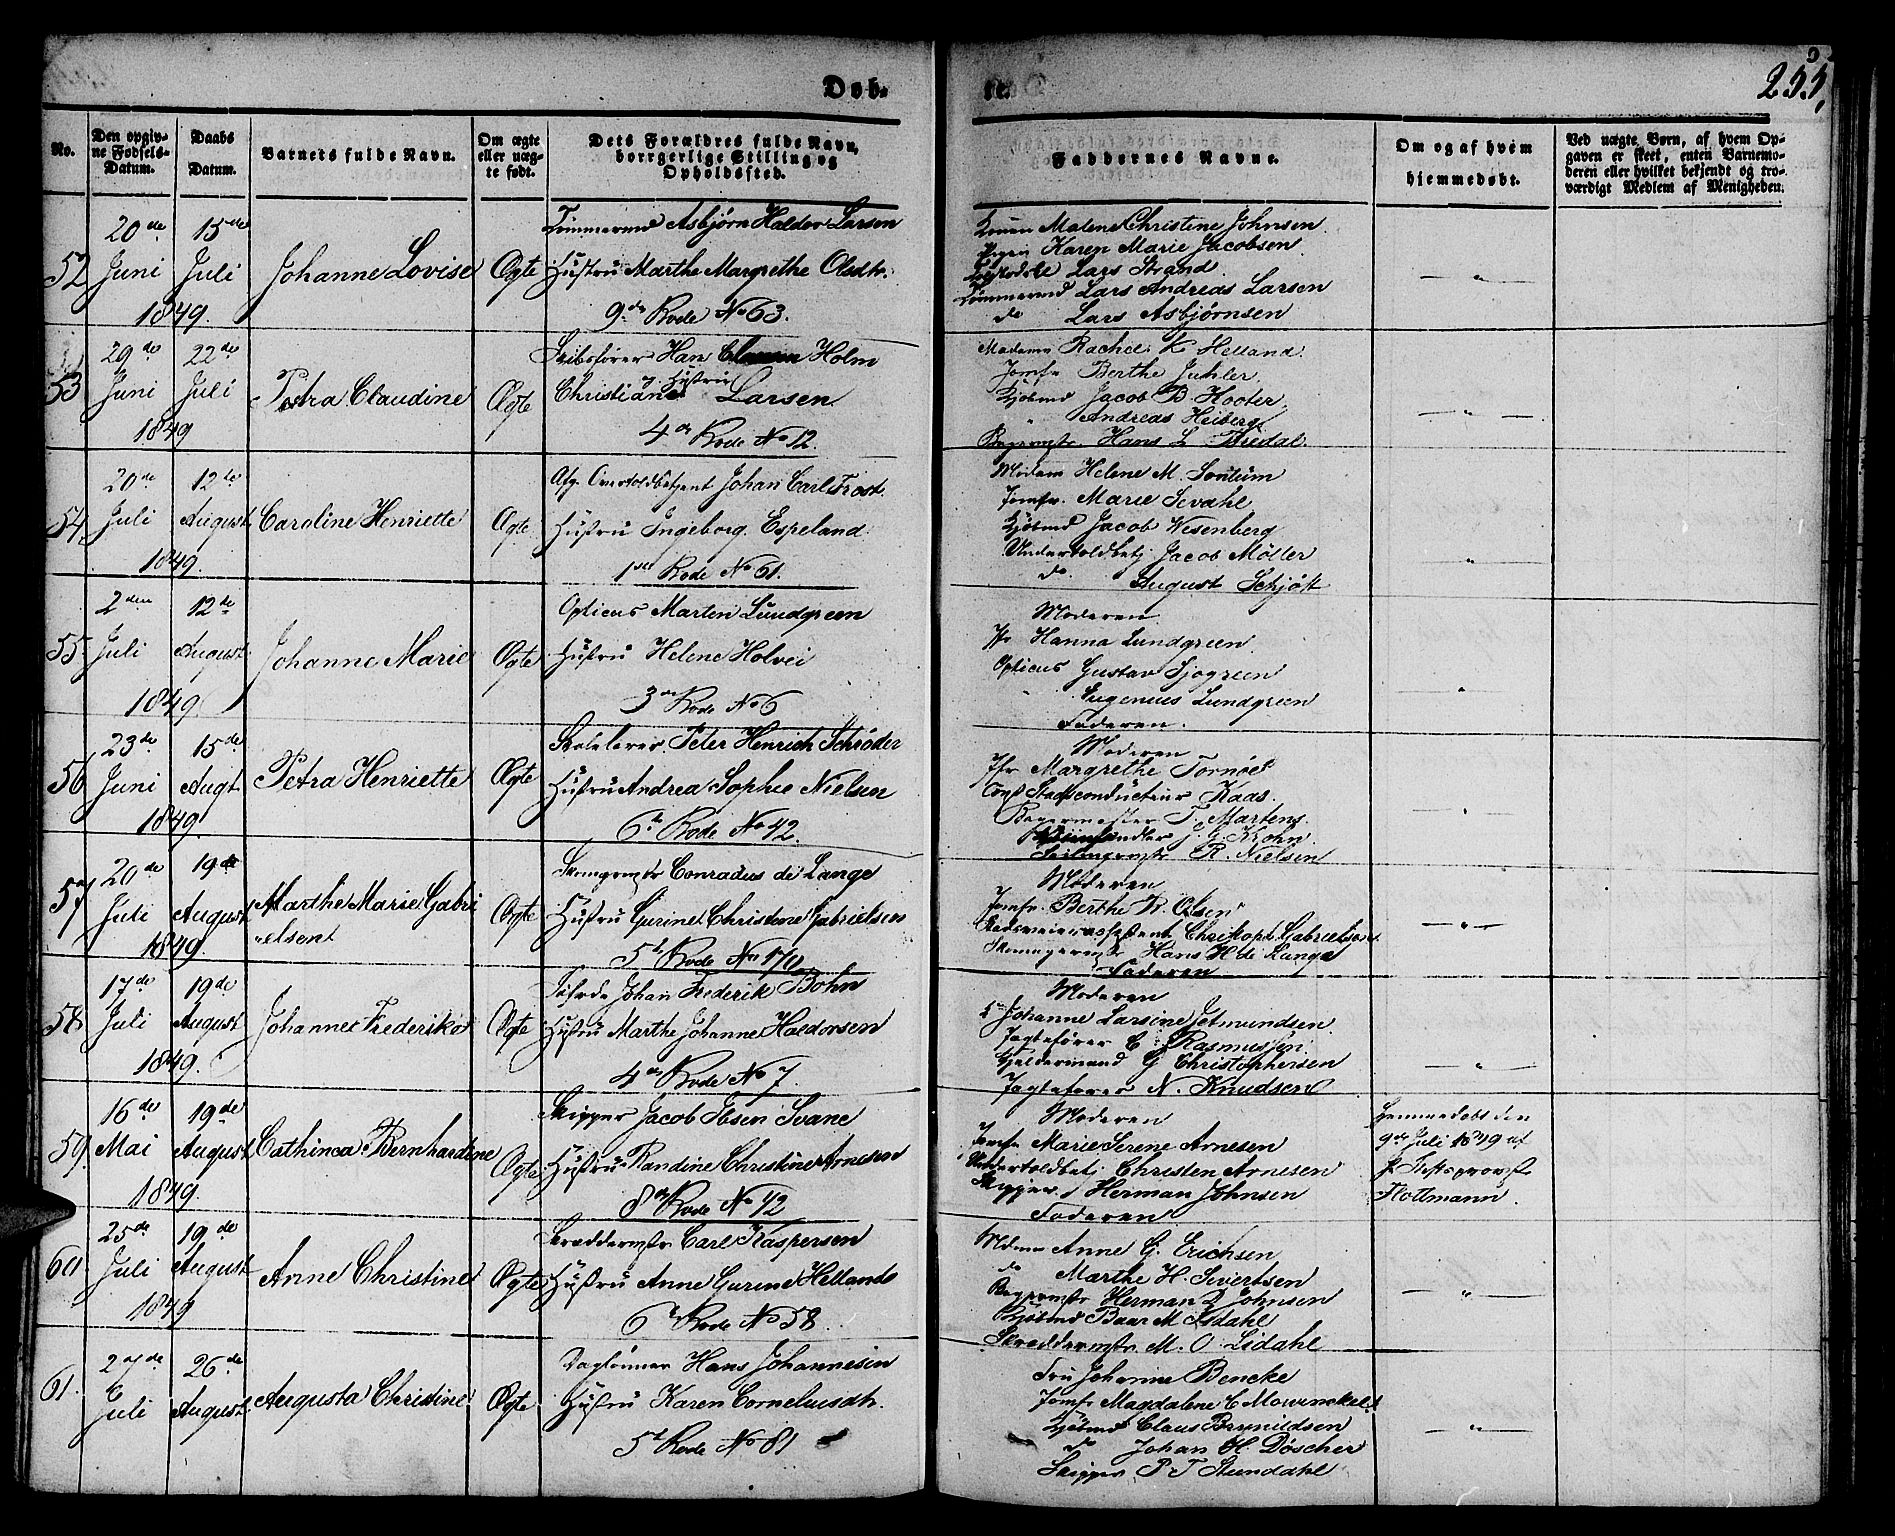 Døb-
te.
255,
No.
Den opgiv-
ne Fødsels-
Datum.
Daabs
Datum.
Barnets fulde Navn.
Om ægte
eller uæg-
te født.
Dets Forældres fulde Navn,
borgerlige Stilling og
Opholdssted.
Faddernes Navne.
Om og af hvem
hjemmedøbt.
Ved uægte Børn, af hvem Op-
gaven er skeet, enten Barnemo-
deren eller hvilket bekjendt og tro-
værdigt Medlem af Menigheden.
52
20de
Juni
15de
Juli
1849.
Johanne Lovise
Ægte
Tømmermd Asbjørn Haldor Larsen
Hustru Marthe Margrethe Olsdtr.
9de Rode No 63.
Konen Malene Christine Johnsen
Pigen Karen Marie Jacobsen
Lars Strand
Tømmermd Lars Andreas Larsen
do Lars Asbjørnsen
— " —
53
29de
Juni
22de
Juli
1849
Petra Claudine
Ægte
Skibsfører Han Holm
og Hustru
Christiane Larsen
4de Rode No 12.
Madame Rachel K Helland
Jomfr Berthe Juhler
Kjøbmd Jacob B. Kooter
" Andreas Heiberg
Bagermstr. Hans L Bredal
— " —
54.
20de
Juli
12te
August
1849.
Caroline Henriette
Ægte
Afg. Overtoldbetjent Johan Carl Frost
Hustru Ingeborg Espeland
1ste Rode No 61.
Madam Helene M. Sontum
Jomfr. Marie Sevahl
Kjøbmd Jacob Wesenberg
Undertoldbetj. Jacob Møller
do. August Schjøtt
— " —
55.
2den
Juli
12te
August
1849
Johanne Marie
Ægte
Opticus Marten Lundgreen
Hustru Helene Holvei
3de Rode No 6
Moderen
Jfr Hanna Lundgreen
Opticus Gustav Sjogreen
" Eugenius Lundgreen
Faderen.
— " —
56
23de
Juni
15de
Augt
1849.
Petra Henriette
Ægte
Skolelærer Peter Henrich Schrøder
Hustru Andrea Sophie Nielsen
6te Rode No 42.
Moderen
Jfr Margrethe Tornøe
Const Stadsconducteur Kaas.
Bagermester T. Martens
J. G. Krohn
Seilmagermstr R. Nielsen
— " —
57
20de
Juli
19de
August
1849.
Marthe Marie Gabri
elsent
Ægte
Skomagermstr Conradus de Lange
Hustru Gurine Christine Gabrielsen
5te Rode No 170
Moderen
Jomfr. Berthe R. Olsen
Christoph Gabrielsen
Skomagermstr Hans H de Lange
Faderen
— " —
58
17de
Juli
19de
August
1849.
Johanne Frederike
Ægte
Johan Frederik Bohn
Hustru Marthe Johanne Haldorsen
4de Rode No 7.
Moderen
Johanne Larsine Jetmundsen
Jagtefører C. Rasmussen
G Christophersen
Jagtefører N. Knudsen
— " —
59.
16de
Mai
19de
August
1849.
Cathinca Bernhardine
Ægte
Skipper Jacob Ibsen Svane
Hustru Randine Christine Arnesen
8de Rode No 42
Moderen
Jomfr Marie Serene Arnesen
Undertoldbetj Christen Arnesen
Skipper Herman Johnsen
Faderen
Hjemmedøbt den
9de Juli 1849 af
Hr Stiftsprovst
Flottmann.
60
25de
Juli
19de
August
1849
Anne Christine
Ægte
Skreddermstr Carl Kaspersen
Hustru Anne Gurine Hellands
6te Rode No 58.
Mdme Anne G. Erichsen
do Marthe H. Sivertsen
Bagermstr Herman D Johnsen
Kjøbmd Baar M Lidahl
Skreddermstr M. O. Lidahl
— " —
61.
27de
Juli
26de
August
Augusta Christine
Ægte
Daglønner Hans Johannesen
Hustru Karen Corneliusdtr.
5te Rode No 81
Fru Johanne Bencke
Jomfr Magdalene C Mowinckel
Kjøbmd Claus Brynildsen
do Johan H. Döscher
Skipper P T Steendahl
— " —